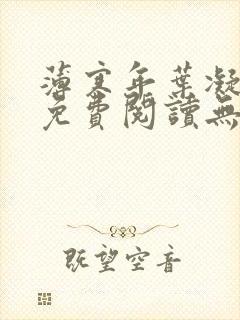 薄寒年葉凝
免費閱讀無
既望空音